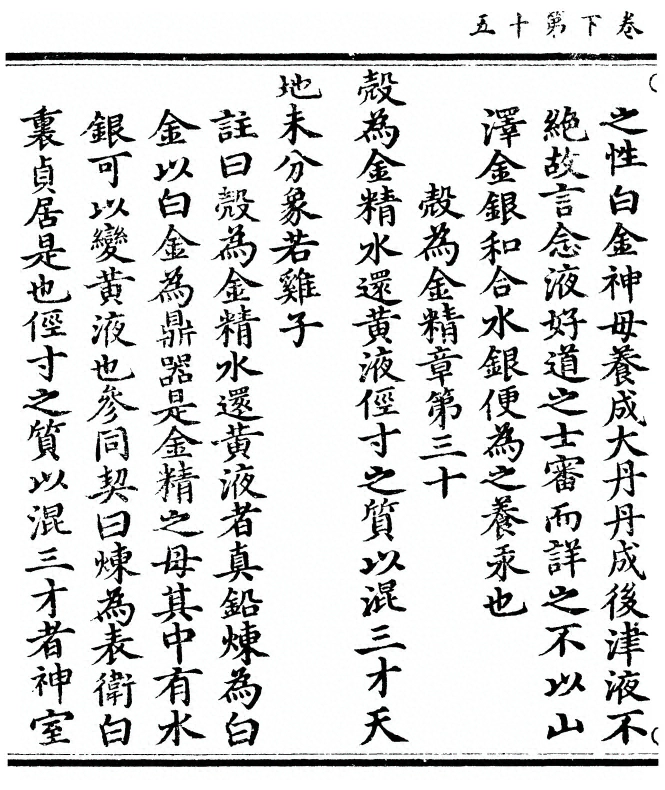 卷下第十五
之性白金神母養成大丹丹成後津液不
絕故言念液好道之士審而詳之不以山
澤金銀和合水銀便為之養汞也
殼為金精章第三十
殼為金精水還黃液徑寸之質以混三才天
地未分象若雞子
註曰殼為金精水還黃液者真鉛煉為白
金以白金為鼎器是金精之母其中有水
銀可以變黃液也參同契曰煉為表衛白
裏貞居是也徑寸之質以混三才者神室